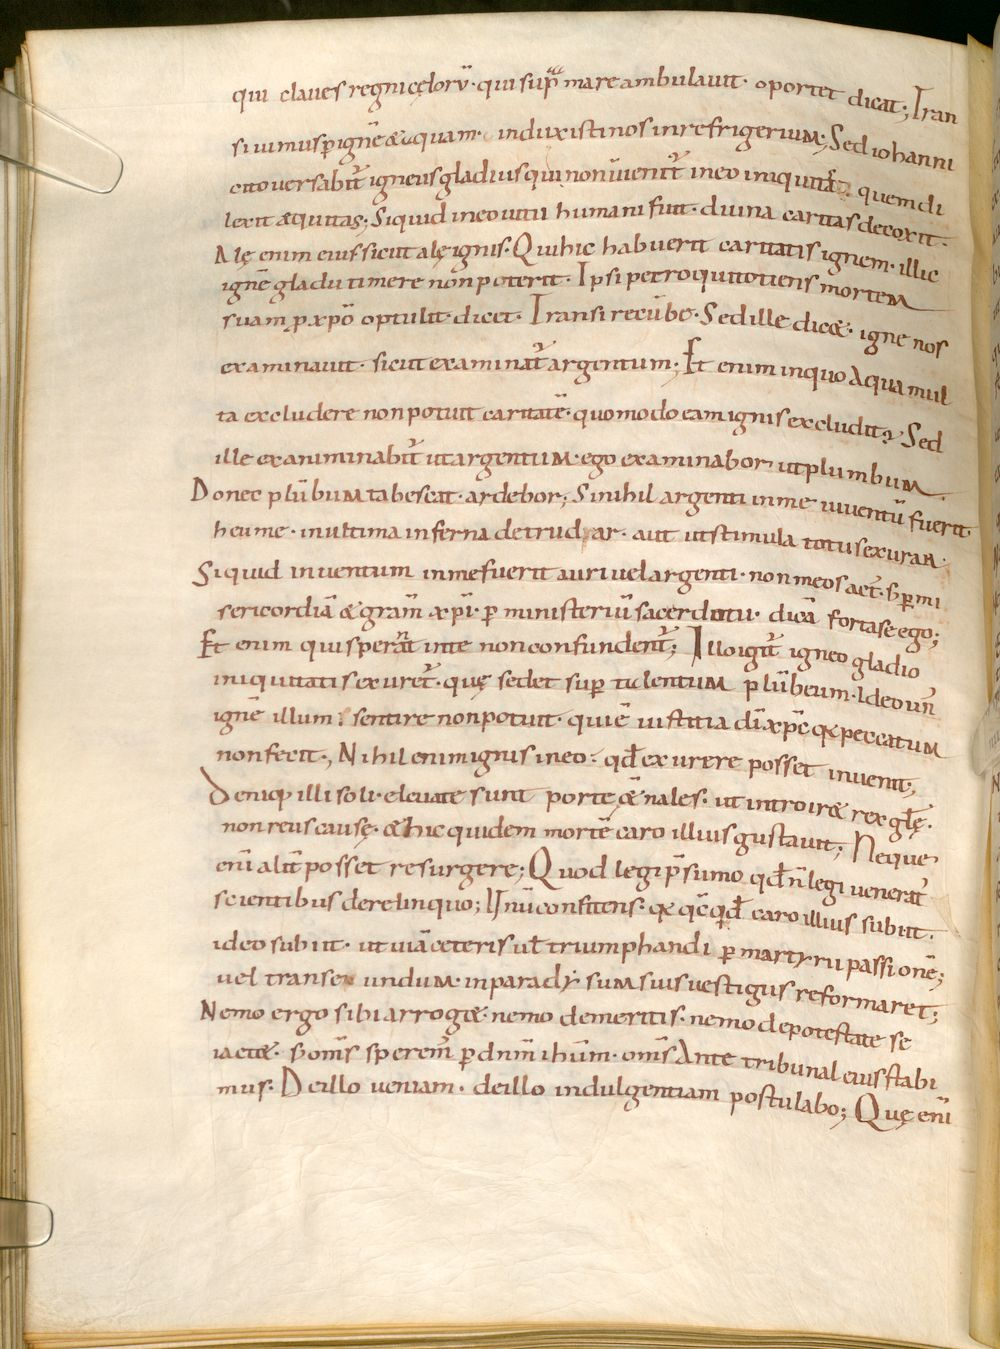 qui claues regni cęlorū· qui sup̄ mare ambulauit· oportet dicat; Tran
siuimus p̱ ignē & aquam· induxisti nos in refrigeriuм; Sed iohanni
cito uersabit᷑ igneus gladius qui non inuenit᷑ in eo iniquitas quem di
lexit æquitas; Siquid in eo uitii humani fuit· diuina caritas decoxit·
Alę enim eius sicut alę ignis· Qui hic habuerit caritatis ignem· illic
ignē gladii timere non poterit· Ipsi petro qui totiens mortem
suam p̱ xp̄o optulit· dicet· Transi recūbe· Sed ille dic&· igne nos
examinauit· sicut examinat᷑ argentum; Et enim in quo Aqua mul
ta excludere non potuit caritatē· quomodo eam ignis excludit? Sed
ille examinabit᷑ ut argentum· ego examinabor ut plumbum
Donec plūbum tabescat· ardebor; Si nihil argenti in me inuentū fuerit
heu me· in ultima inferna detrudar· aut ut stimula totus exurar·
Siquid inuentum in me fuerit auri uel argenti· non meos act᷑· s; p̱ mi
sericordiā & gram̄ xp̄i· p̱ ministeriū sacerdotii· dicā fortase ego;
Et enim qui sperat᷑ in te non confundent᷑; Illo igit᷑ igneo gladio
iniquitatis exuret᷑· quę sedet sup̱ talentum plūbeum· Ideo un̄
ignē illum sentire non potuit· qui ē iustitia dī xp̄c q̱ peccatum
non fecit·, Nihil enim ignis in eo· qđ exurere posset inuenit;
Deniq; illi soli· eleuatę sunt portę &̄nales· ut introir& rex glę·
non reus causę· & hic quidem mortē caro illius gustauit; Neque
eni alit᷑ posset resurgere; Quod legi p̄sumo qđ n̄ legi uenerat᷑
scientibus derelinquo; Unū confitens· q̱ qc̄qđ caro illius subiit·
ideo subiit· ut uiā ceteris ut triumphandi p̱ martyrii passionē;
uel transeundum· in paradysum suis uestigiis reformaret;
Nemo ergo sibi arrog&· nemo de meritis· nemo de potestate se
iact&· s; om̄s sperem᷑ p̱ dnm̄ ihm̄· om̄s Ante tribunal eius stabi
mus· De illo ueniam· de illo indulgentiam postulabo; Quę eni